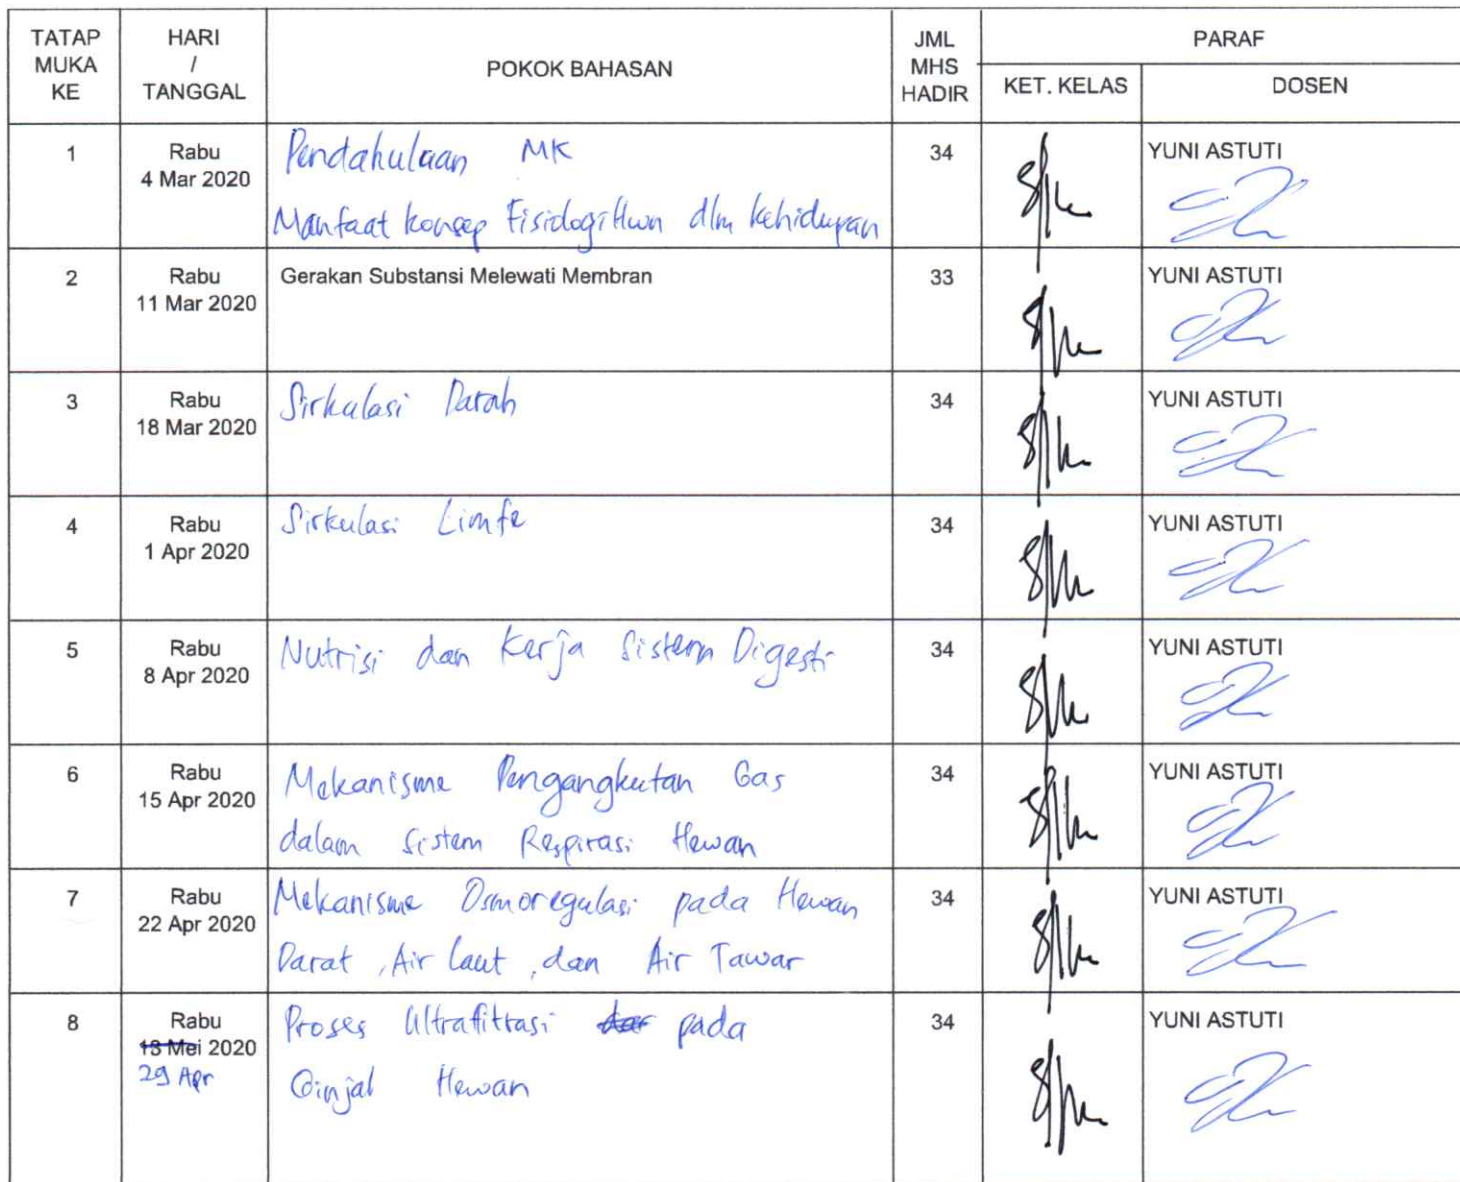 TATAP MUKA KE
HARI / TANGGAL
POKOK BAHASAN
JML MHS HADIR
PARAF
KET. KELAS
DOSEN
1
Rabu
4 Mar 2020
Pendahulaan MK
Manfaat konsep Fisiologi Hwn dlm kehidupan
34
YUNI ASTUTI
2
Rabu
11 Mar 2020
Gerakan Substansi Melewati Membran
33
YUNI ASTUTI
3
Rabu
18 Mar 2020
Sirkulasi Darah
34
YUNI ASTUTI
4
Rabu
1 Apr 2020
Sirkulasi Limfe
34
YUNI ASTUTI
5
Rabu
8 Apr 2020
Nutrisi dan Kerja Sistem Digesti
34
YUNI ASTUTI
6
Rabu
15 Apr 2020
Mekanisme Pengangkutan Gas
dalam Sistem Respirasi Hewan
34
YUNI ASTUTI
7
Rabu
22 Apr 2020
Mekanisme Osmoregulasi pada Hewan
Darat, Air Laut, dan Air Tawar
34
YUNI ASTUTI
8
Rabu
13 Mei 2020
29 Apr
Proses Ultrafiltrasi pada
Ginjal Hewan
34
YUNI ASTUTI